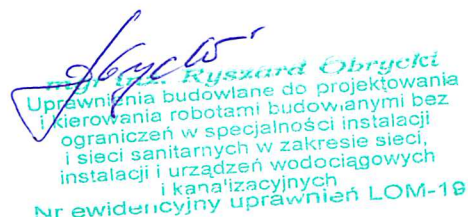 mgr inż. Ryszard Obrycki
Uprawnienia budowlane do projektowania
i kierowania robotami budowlanymi bez
ograniczeń w specjalności instalacji
i sieci sanitarnych w zakresie sieci,
instalacji i urządzeń wodociągowych
i kanalizacyjnych
Nr ewidencyjny uprawnień LOM-19